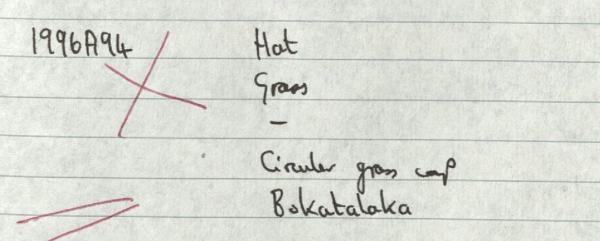 1996A94
Hat
Grass
–
Circular grass cap
Bokatalaka